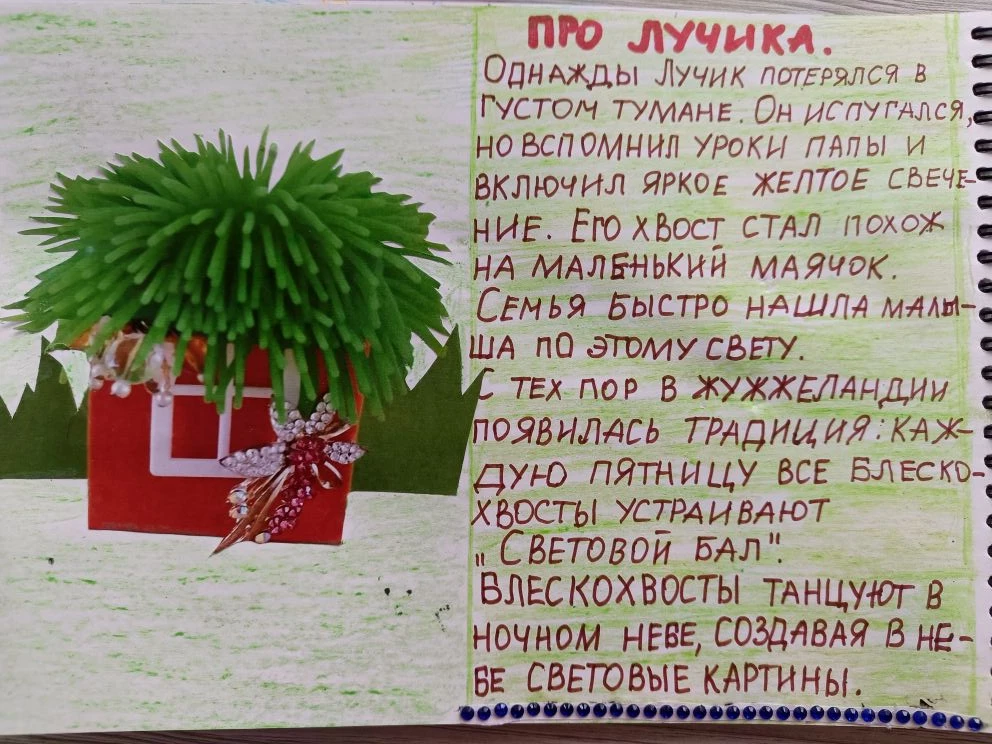 ПРО ЛУЧИКА.
ОДНАЖДЫ ЛУЧИК ПОТЕРЯЛСЯ В
ГУСТОМ ТУМАНЕ. ОН ИСПУГАЛСЯ,
НО ВСПОМНИЛ УРОКИ ПАПЫ И
ВКЛЮЧИЛ ЯРКОЕ ЖЕЛТОЕ СВЕЧЕ-
НИЕ. ЕГО ХВОСТ СТАЛ ПОХОЖ
НА МАЛЕНЬКИЙ МАЯЧОК.
СЕМЬЯ БЫСТРО НАШЛА МАЛЫ-
ША ПО ЭТОМУ СВЕТУ.
С ТЕХ ПОР В ЖУЖЖЕЛАНДИИ
ПОЯВИЛАСЬ ТРАДИЦИЯ: КАЖ-
ДУЮ ПЯТНИЦУ ВСЕ БЛЕСКО-
ХВОСТЫ УСТРАИВАЮТ
„СВЕТОВОЙ БАЛ".
БЛЕСКОХВОСТЫ ТАНЦУЮТ В
НОЧНОМ НЕБЕ, СОЗДАВАЯ В НЕ-
БЕ СВЕТОВЫЕ КАРТИНЫ.